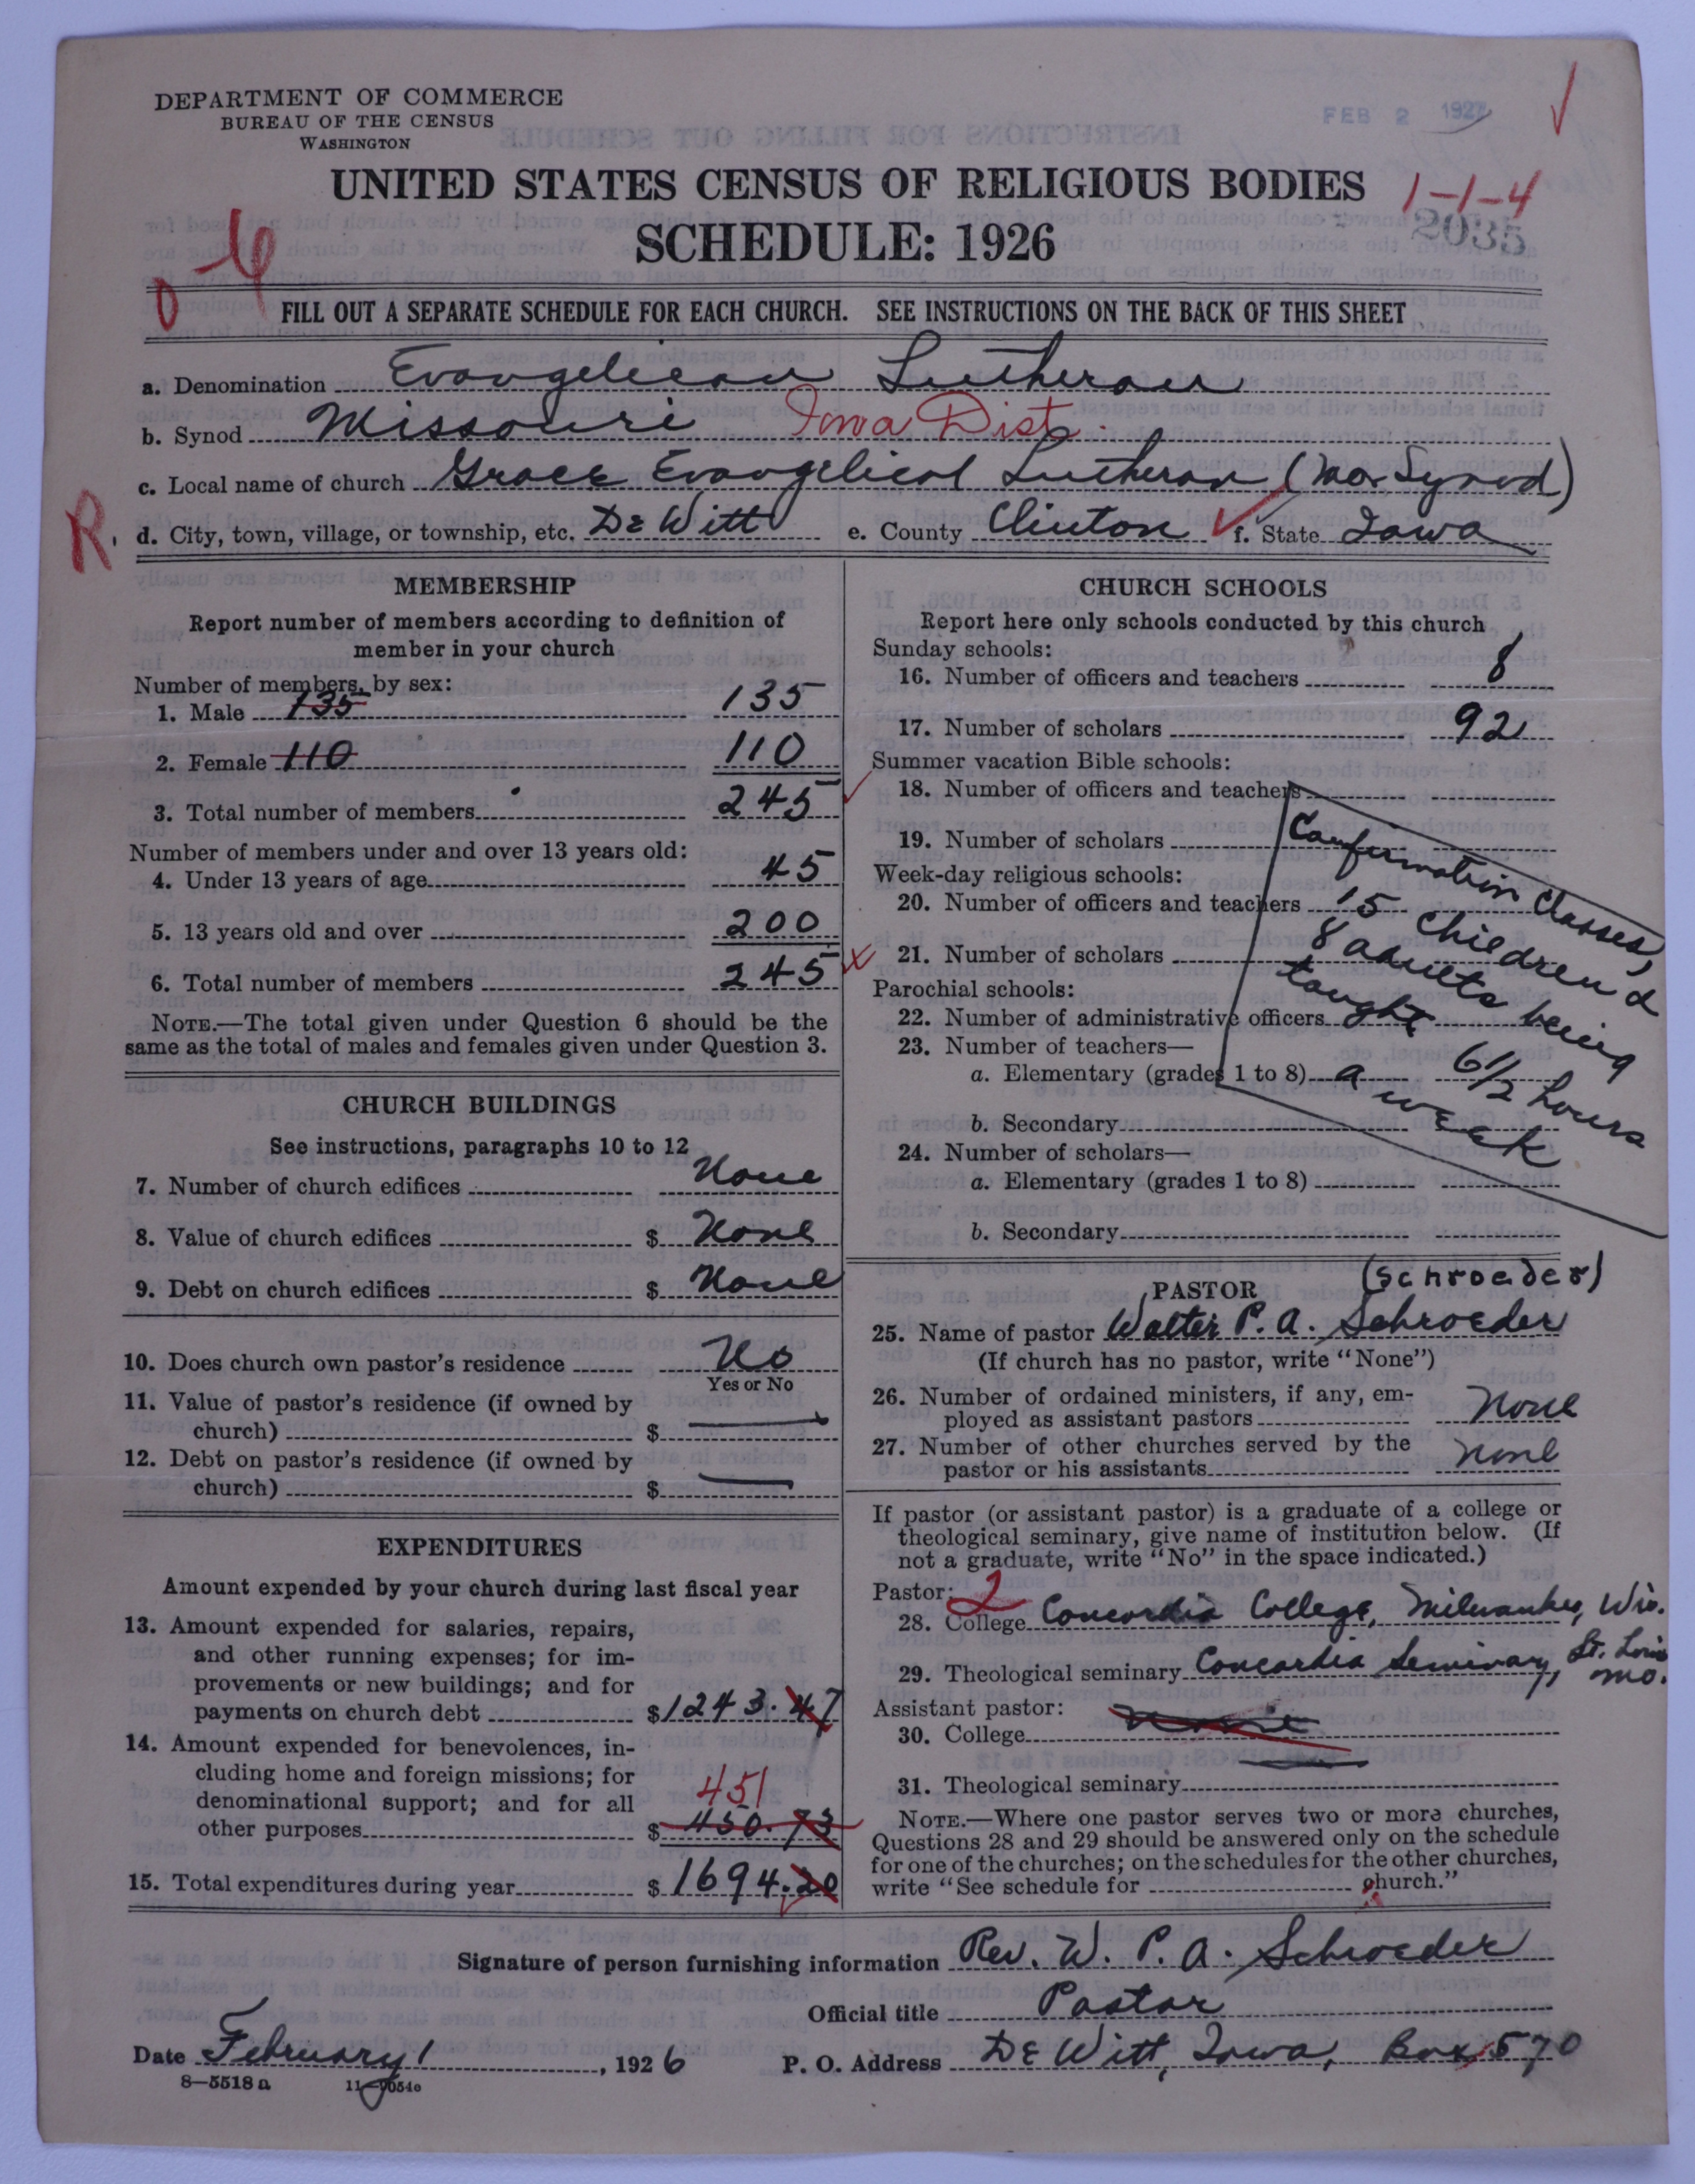 DEPARTMENT OF COMMERCE
BUREAU OF THE CENSUS
WASHINGTON
FEB 2 1927
UNITED STATES CENSUS OF RELIGIOUS BODIES
1-1-4
SCHEDULE: 1926
2035
FILL OUT A SEPARATE SCHEDULE FOR EACH CHURCH. SEE INSTRUCTIONS ON THE BACK OF THIS SHEET
a. Denomination Evangelican Lutheran
b. Synod Missouri Iowa Dist.
c. Local name of church Grace Evangelical Lutheran (Mo. Synod)
R. d. City, town, village, or township, etc. De Witt e. County Clinton f. State Iowa
MEMBERSHIP
Report number of members according to definition of
member in your church
Number of members, by sex:
1. Male 135 135
2. Female 110 110
3. Total number of members 245
Number of members under and over 13 years old:
4. Under 13 years of age 45
5. 13 years old and over 200
6. Total number of members 245
NOTE.—The total given under Question 6 should be the
same as the total of males and females given under Question 3.
CHURCH BUILDINGS
See instructions, paragraphs 10 to 12
7. Number of church edifices None
8. Value of church edifices $ None
9. Debt on church edifices $ None
10. Does church own pastor's residence No
Yes or No
11. Value of pastor's residence (if owned by
church) $ —
12. Debt on pastor's residence (if owned by
church) $ —
EXPENDITURES
Amount expended by your church during last fiscal year
13. Amount expended for salaries, repairs,
and other running expenses; for im-
provements or new buildings; and for
payments on church debt $ 1243.47
14. Amount expended for benevolences, in-
cluding home and foreign missions; for
denominational support; and for all
451
other purposes $ 450.73
15. Total expenditures during year $ 1694.20
CHURCH SCHOOLS
Report here only schools conducted by this church
Sunday schools:
16. Number of officers and teachers 8
17. Number of scholars 92
Summer vacation Bible schools:
18. Number of officers and teachers
19. Number of scholars
Week-day religious schools:
20. Number of officers and teachers
21. Number of scholars
Parochial schools:
22. Number of administrative officers
23. Number of teachers—
a. Elementary (grades 1 to 8)
b. Secondary
24. Number of scholars—
a. Elementary (grades 1 to 8)
b. Secondary
Confirmation Classes,
15 Children &
8 adults being
taught 6 1/2 hours
a week
PASTOR
(Schroeder)
25. Name of pastor Walter P. A. Schroeder
(If church has no pastor, write "None")
26. Number of ordained ministers, if any, em-
ployed as assistant pastors None
27. Number of other churches served by the
pastor or his assistants None
If pastor (or assistant pastor) is a graduate of a college or
theological seminary, give name of institution below. (If
not a graduate, write "No" in the space indicated.)
Pastor: 2
28. College Concordia College, Milwaukee, Wis.
29. Theological seminary Concordia Seminary, St. Louis
Mo.
Assistant pastor:
30. College None
31. Theological seminary
NOTE.—Where one pastor serves two or more churches,
Questions 28 and 29 should be answered only on the schedule
for one of the churches; on the schedules for the other churches,
write "See schedule for church."
Signature of person furnishing information Rev. W. P. A. Schroeder
Official title Pastor
Date February 1, 1926 P. O. Address De Witt, Iowa, Box 570
8—5518 a